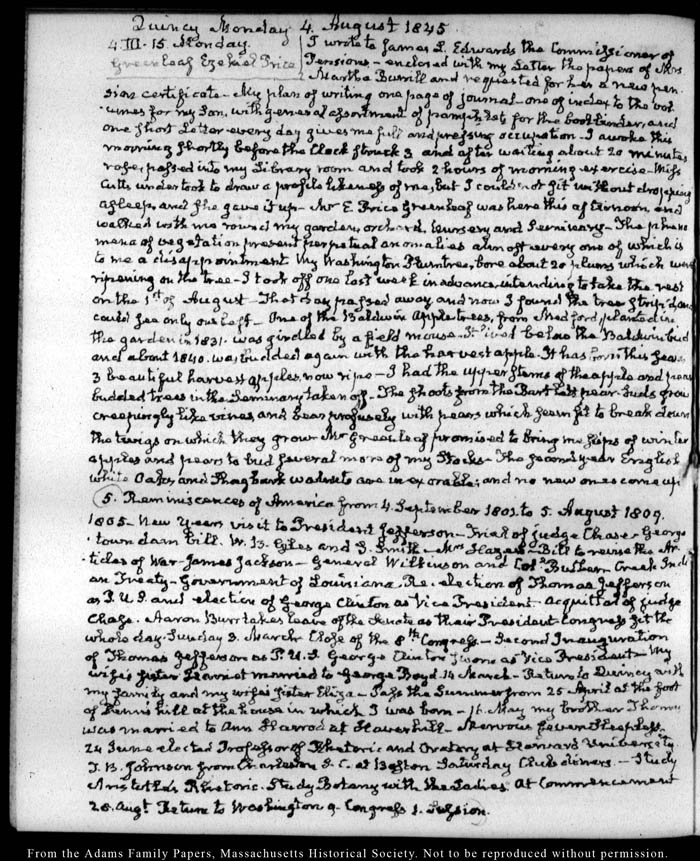 Quincy Monday 4. August 1845.
4. III. 15. Monday.
Greenleaf Ezekiel Price
I wrote to James L. Edwards the Commissioner of
Pensions — enclosed with my Letter the papers of Mrs
Martha Burrill and requested for her a new pen-
sion certificate — My plan of writing one page of journal — one of index to the vol-
umes for my Son, with general assortment of pamphlets for the bookbinder, and
one short Letter every day gives me full and pressing occupation — I awoke this
morning shortly before the Clock struck 3 and after waiting about 20 minutes
rose, passed into my Library room and took 2 hours of morning exercise — Miss
Cutts undertook to draw a profile likeness of me, but I could not sit without dropping
asleep, and she gave it up — Mr E. Price Greenleaf was here this afternoon, and
walked with me round my garden, orchard, nursery and Seminary — The pheno-
mena of vegetation present perpetual anomalies almost every one of which is
to me a disappointment. My Washington Plumtree, bore about 20 plums which were
ripening on the tree — I took off one last week in advance, intending to take the rest
on the 1st of August — That day passed away and now I found the tree strip'd, and
could see only one left — One of the Baldwin Apple trees, from Medford, planted in
the garden in 1831. was girdled by a field mouse — It lived below the Baldwin bud
and about 1840. was budded again with the harvest apple. It has born this year
3 beautiful harvest apples, now ripe — I had the upper stems of the apple and pear
budded trees in the Seminary taken off — The shoots from the Bartlett pear buds grow
creepingly like vines and bear profusely with pears which seem fit to break down
the twigs on which they grow — Mr Greenleaf promised to bring me slips of winter
apples and pears to bud several more of my Stocks — The second year English
white Oaks, and Shagbark walnuts are inexorable; and no new ones come up
5. Reminiscences of America from 4. September 1801. to 5. August 1809.
1805 — New Years visit to President Jefferson — Trial of judge Chase — George-
town dam bill. W. B. Giles and S. Smith — Mrs — Bill to revise the Ar-
ticles of War — James Jackson — General Wilkinson and Coll Butler — Creek Indi-
an Treaty — Government of Louisiana. Re-election of Thomas Jefferson
as P. U. S. and election of George Clinton as Vice President. Acquittal of judge
Chase. Aaron Burr takes leave of the Senate as their President. Congress sit the
whole day Sunday 3. March. Close of the 8th Congress — Second Inauguration
of Thomas Jefferson as P. U. S. George Clinton sworn as Vice President — My
wife's sister Harriet married to George Boyd 14 March — Return to Quincy with
my family and my wife's sister Eliza — Pass the Summer from 25 April at the foot
of Penns hill at the house in which I was born — 16. May my brother Thomas
was married to Ann Harrod at Haverhill — Nervous fever. Sleepless.
24 June elected Professor of Rhetoric and Oratory at Harvard University.
J. B. Johnson from Charleston S. C. at Boston Saturday Club dinners — Study
Aristotle's Rhetoric. Study Botany with the Ladies. At Commencement
28. Augt Return to Washington 9. Congress 1. Session.
From the Adams Family Papers, Massachusetts Historical Society. Not to be reproduced without permission.